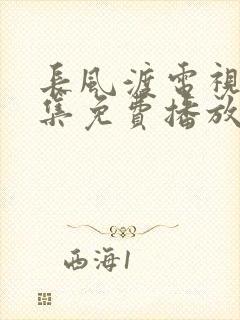 長風渡電視
集免費播放
西海1